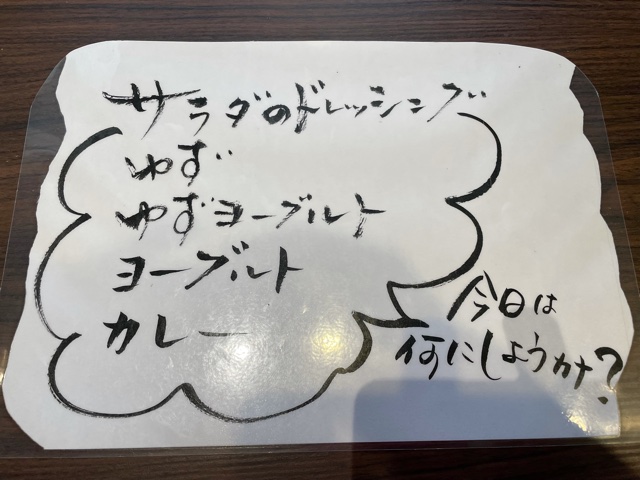 サラダのドレッシング
ゆず
ゆずヨーグルト
ヨーグルト
カレー
今日は
何にしようカナ?